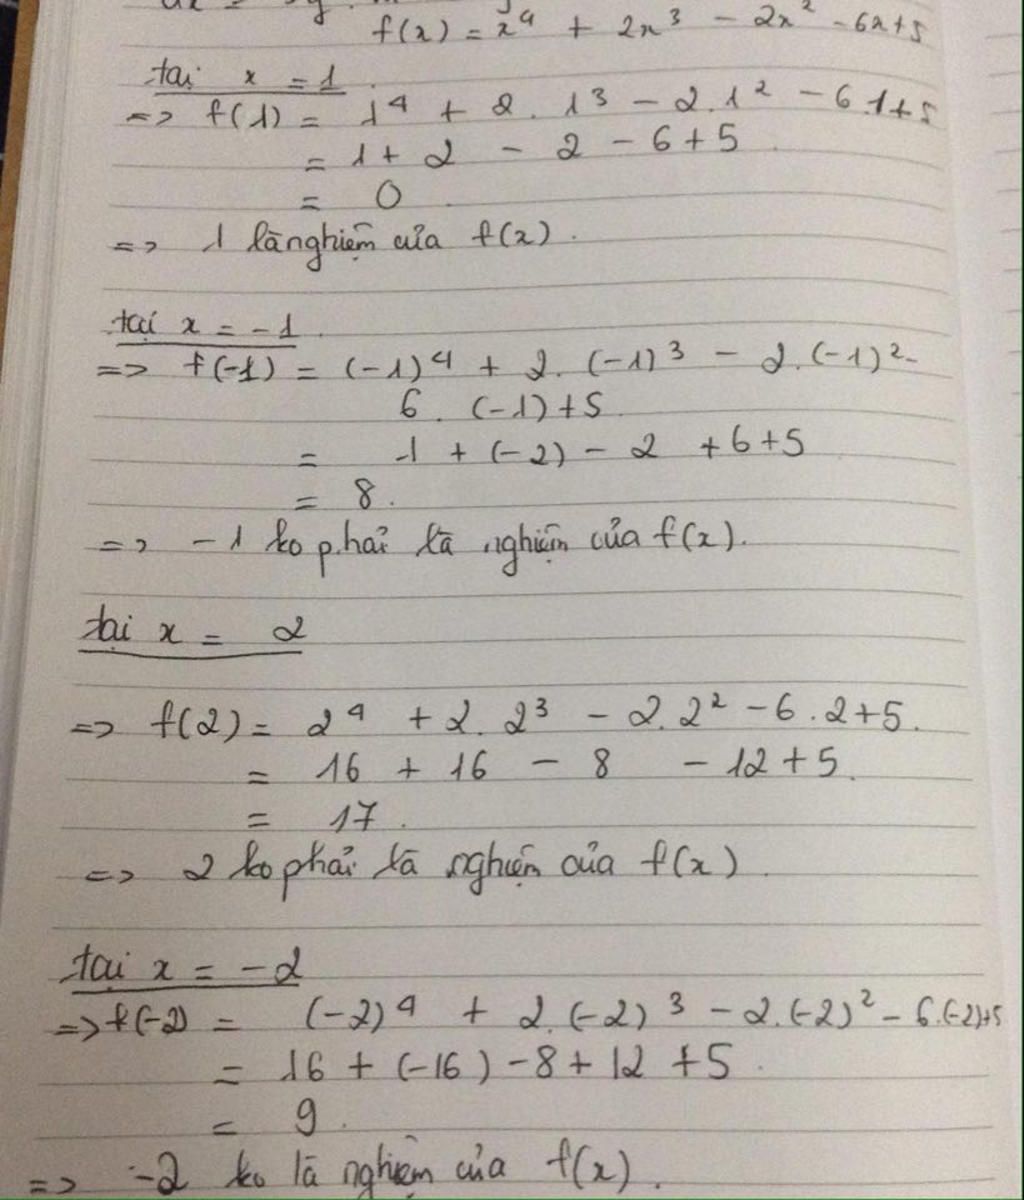 f(x) = x⁴ + 2x³ - 2x² - 6x+5
tại x = 1
=> f(1) = 1⁴ + 2. 1³ - 2.1² - 6.1+5
= 1 + 2 - 2 - 6+5
= 0
=> 1 là nghiệm của f(x).
tại x = -1
=> f(-1) = (-1)⁴ + 2. (-1)³ - 2.(-1)² -
6. (-1)+5
= 1 + (-2) - 2 +6+5
= 8.
=> -1 ko phải là nghiệm của f(x).
tại x = 2
=> f(2) = 2⁴ + 2. 2³ - 2.2² - 6.2+5.
= 16 + 16 - 8 - 12+5.
= 17.
=> 2 ko phải là nghiệm của f(x)
tại x = -2
=> f(-2) = (-2)⁴ + 2.(-2)³ - 2.(-2)² - 6.(-2)+5
= 16 + (-16) - 8 + 12 + 5.
= 9.
=> -2 ko là nghiệm của f(x).